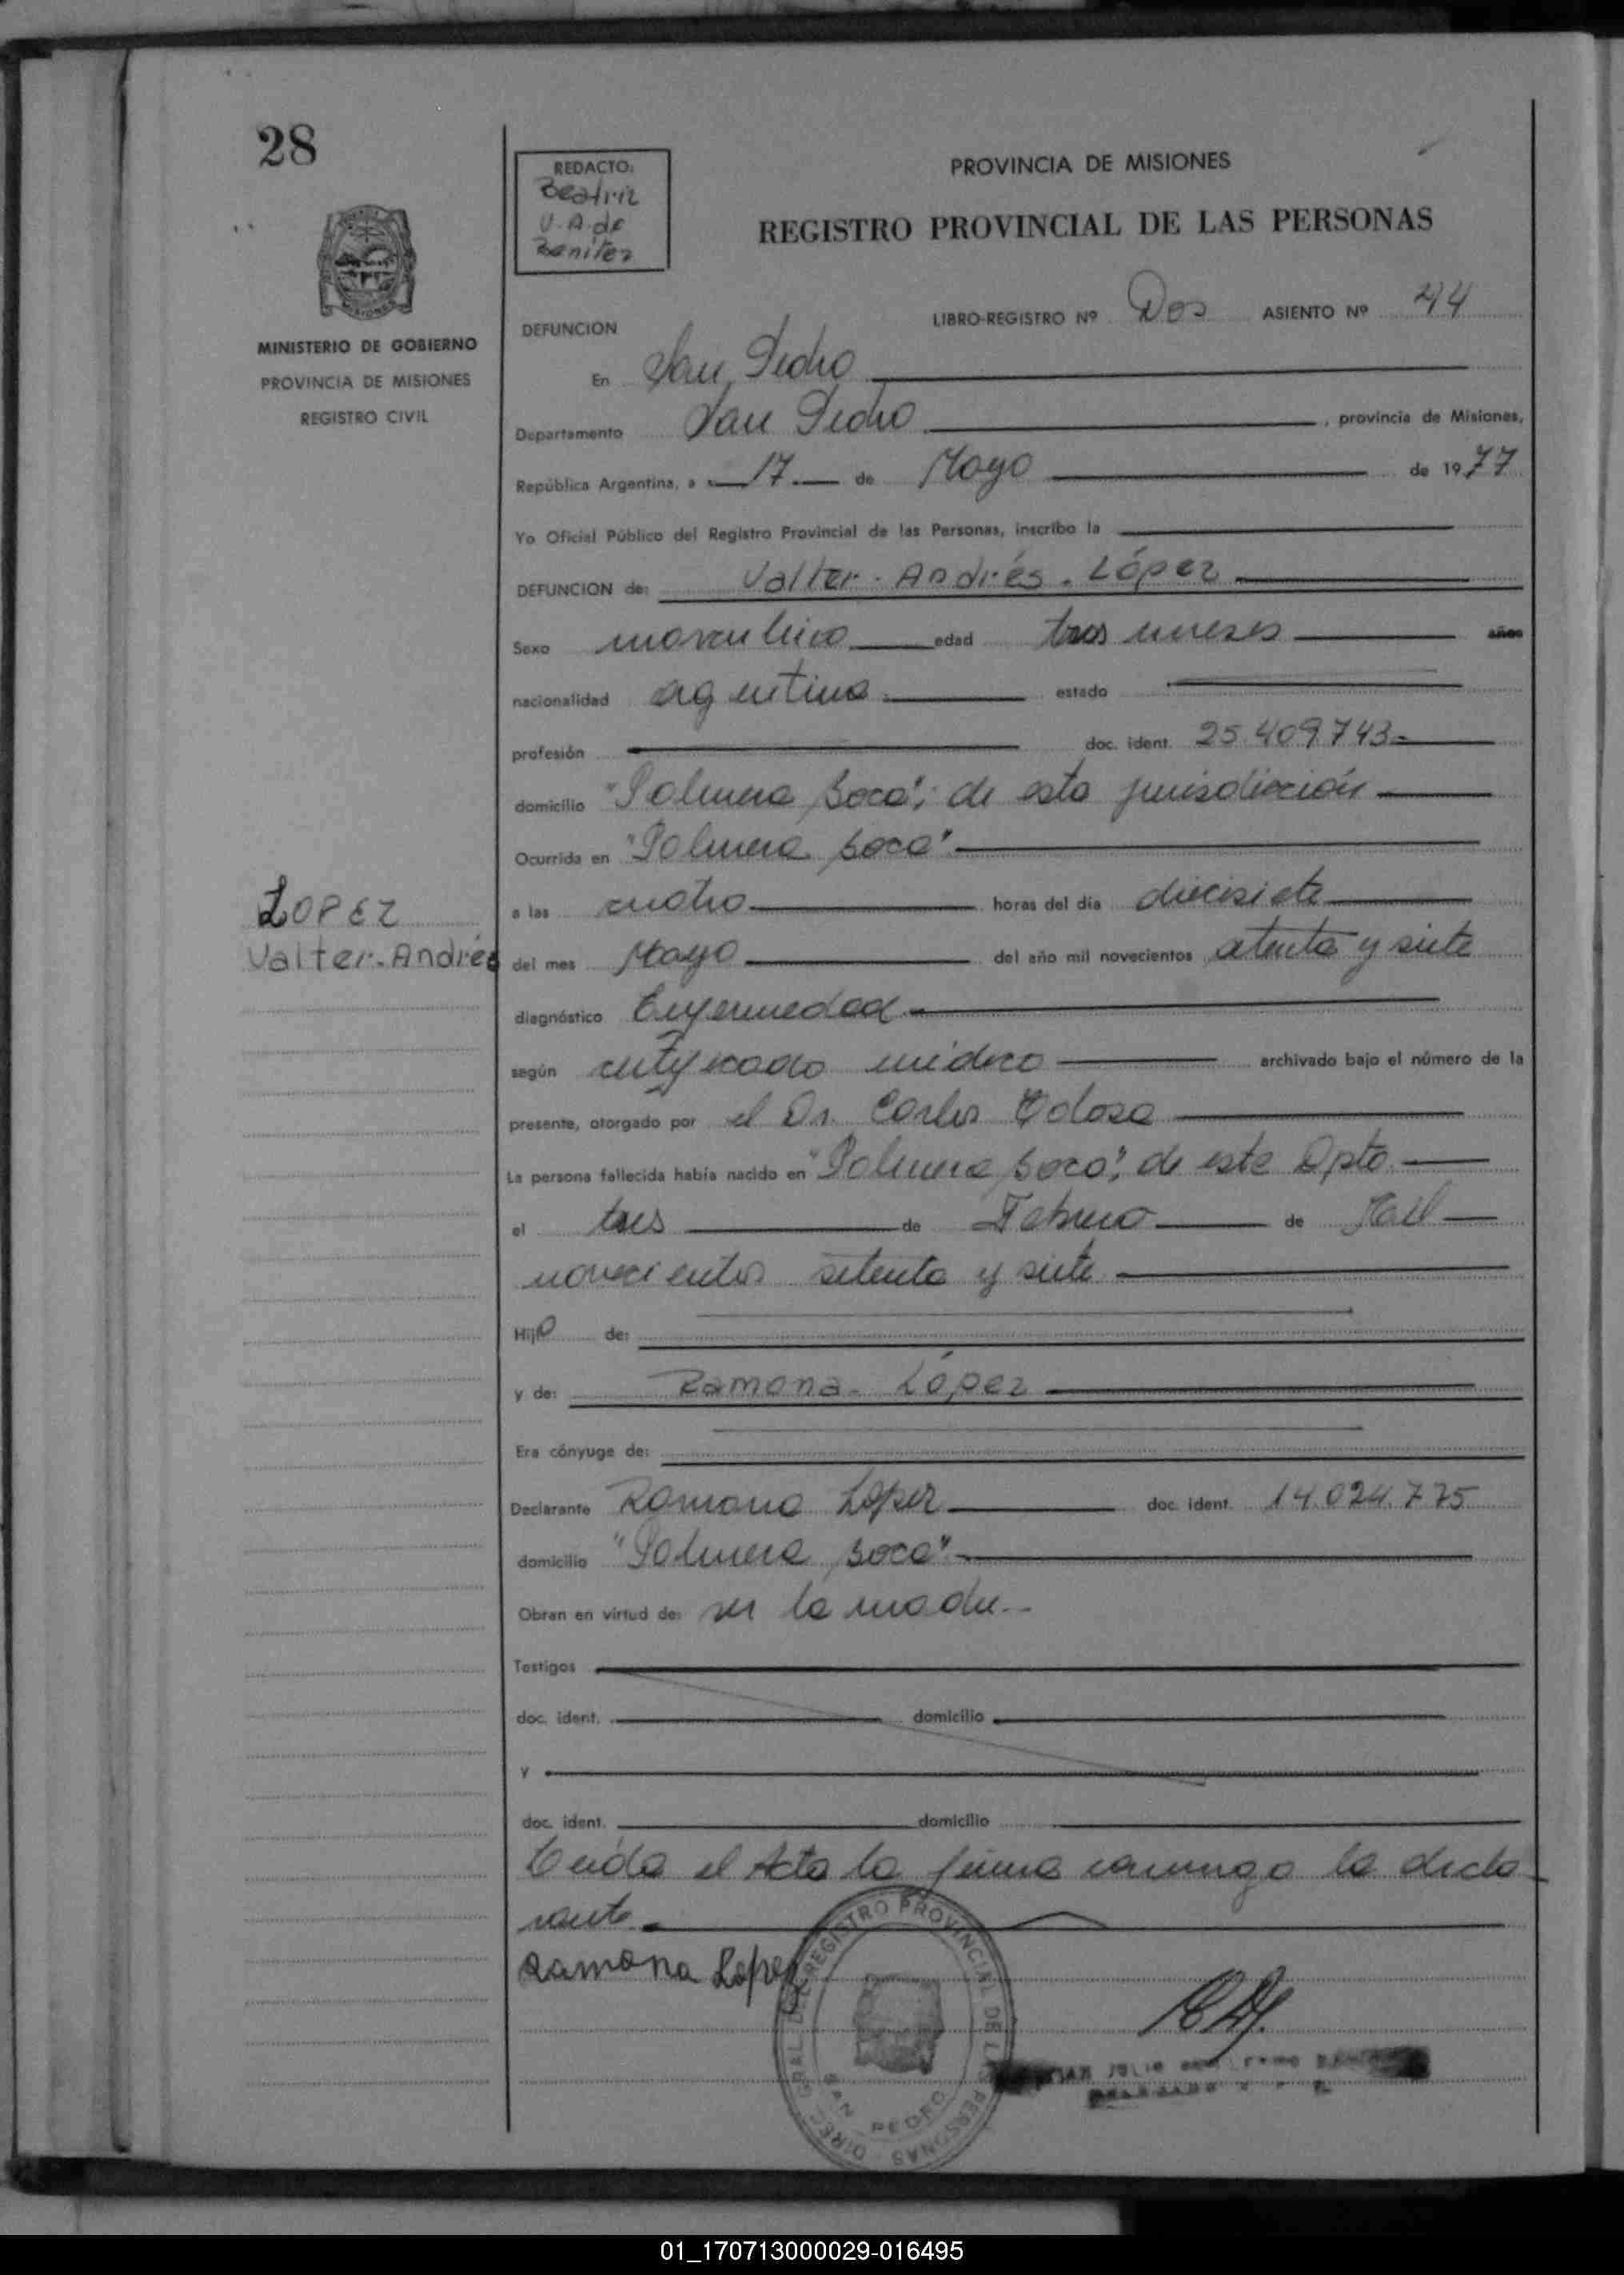 28
REDACTO:
Beatriz
V. A. de
Benítez
PROVINCIA DE MISIONES
REGISTRO PROVINCIAL DE LAS PERSONAS
MINISTERIO DE GOBIERNO
PROVINCIA DE MISIONES
REGISTRO CIVIL
LIBRO-REGISTRO Nº Dos ASIENTO Nº 44
DEFUNCION
En San Pedro
Departamento San Pedro, provincia de Misiones,
República Argentina, a 17 de Mayo de 1977
Yo Oficial Público del Registro Provincial de las Personas, inscribo la
DEFUNCION de: Valter - Andrés - López
Sexo masculino edad tres meses años
nacionalidad argentina estado
profesión doc. ident. 25.409.743
domicilio "Palmera Boca", de esta jurisdicción
Ocurrida en "Palmera Boca"
a las cuatro horas del día diecisiete
LOPEZ
Valter-Andrés
del mes Mayo del año mil novecientos setenta y siete
diagnóstico Enfermedad
según certificado médico archivado bajo el número de la
presente, otorgado por el Dr. Carlos
La persona fallecida había nacido en "Palmera Boca", de este Dpto.
el tres de Febrero de Mil
novecientos setenta y siete
Hijo de:
y de: Ramona - López
Era cónyuge de:
Declarante Ramona López doc. ident. 14.024.775
domicilio "Palmera Boca"
Obran en virtud de: ser la madre.
Testigos
doc. ident. domicilio
y
doc. ident. domicilio
Leída el Acta la firma conmigo la decla
rante
Ramona Lopez
DIREC. GRAL. DEL REGISTRO PROVINCIAL DE LAS PERSONAS
SAN PEDRO
JULIO
01_170713000029-016495